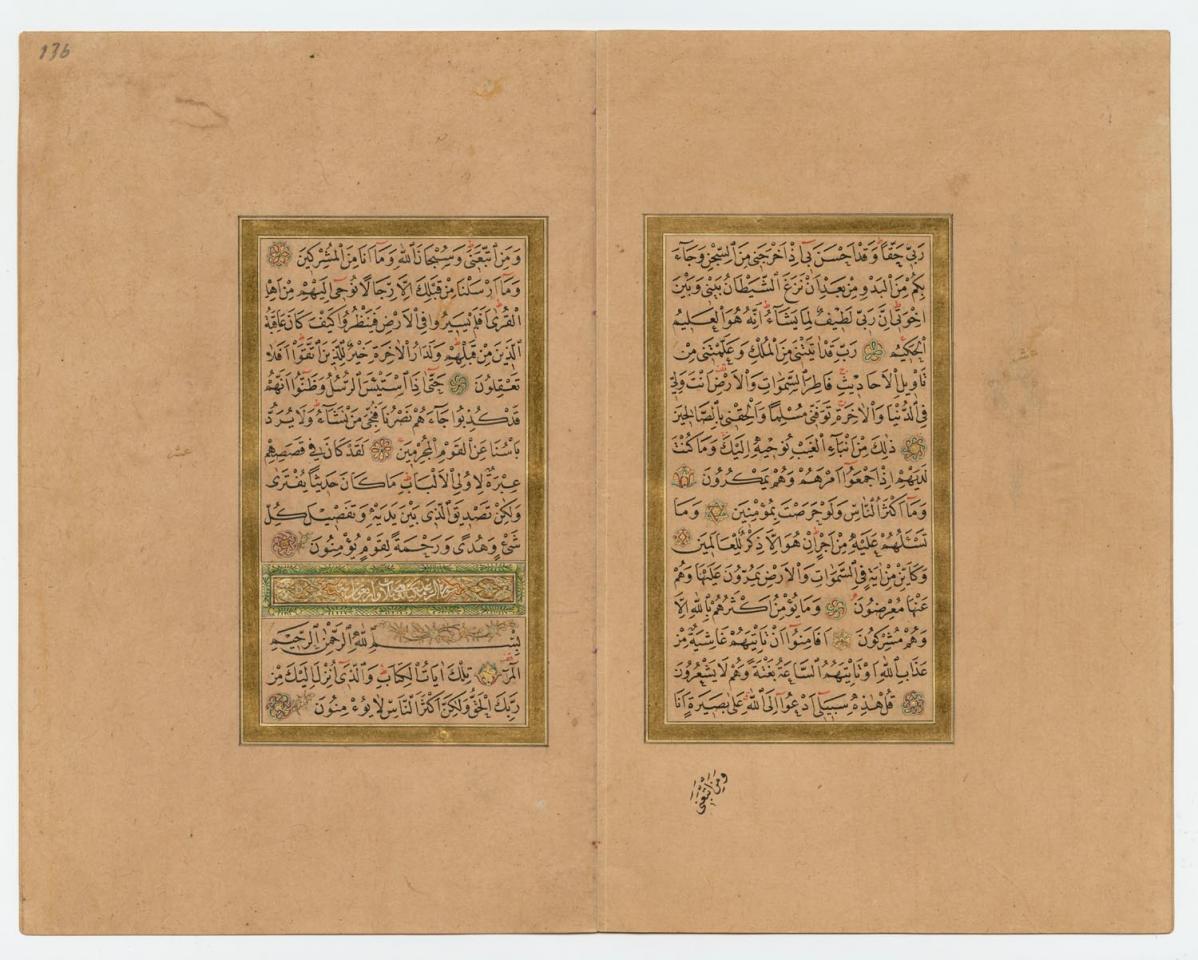 رَبِّي حَقًّا وَقَدْ اَحْسَنَ بِي اِذْ اَخْرَجَنِي مِنَ السِّجْنِ وَجَاءَ
بِكُمْ مِنَ الْبَدْوِ مِنْ بَعْدِ اَنْ نَزَغَ الشَّيْطَانُ بَيْنِي وَبَيْنَ
اِخْوَتِي اِنَّ رَبِّي لَطِيفٌ لِمَا يَشَاءُ اِنَّهُ هُوَ الْعَلِيمُ
الْحَكِيمُ رَبِّ قَدْ اٰتَيْتَنِي مِنَ الْمُلْكِ وَعَلَّمْتَنِي مِنْ
تَاْوِيلِ الْاَحَادِيثِ فَاطِرَ السَّمٰوَاتِ وَالْاَرْضِ اَنْتَ وَلِيِّ
فِي الدُّنْيَا وَالْاٰخِرَةِ تَوَفَّنِي مُسْلِمًا وَاَلْحِقْنِي بِالصَّالِحِينَ
ذٰلِكَ مِنْ اَنْبَاءِ الْغَيْبِ نُوحِيهِ اِلَيْكَ وَمَا كُنْتَ
لَدَيْهِمْ اِذْ اَجْمَعُوا اَمْرَهُمْ وَهُمْ يَمْكُرُونَ
وَمَا اَكْثَرُ النَّاسِ وَلَوْ حَرَصْتَ بِمُؤْمِنِينَ وَمَا
تَسْئَلُهُمْ عَلَيْهِ مِنْ اَجْرٍ اِنْ هُوَ اِلَّا ذِكْرٌ لِلْعَالَمِينَ
وَكَاَيِّنْ مِنْ اٰيَةٍ فِي السَّمٰوَاتِ وَالْاَرْضِ يَمُرُّونَ عَلَيْهَا وَهُمْ
عَنْهَا مُعْرِضُونَ وَمَا يُؤْمِنُ اَكْثَرُهُمْ بِاللّٰهِ اِلَّا
وَهُمْ مُشْرِكُونَ اَفَاَمِنُوا اَنْ تَاْتِيَهُمْ غَاشِيَةٌ مِنْ
عَذَابِ اللّٰهِ اَوْ تَاْتِيَهُمُ السَّاعَةُ بَغْتَةً وَهُمْ لَا يَشْعُرُونَ
قُلْ هٰذِهِ سَبِيلِي اَدْعُوا اِلَى اللّٰهِ عَلٰى بَصِيرَةٍ اَنَا
وَمَنِ اتَّبَعَنِي
136
وَمَنِ اتَّبَعَنِي وَسُبْحَانَ اللّٰهِ وَمَا اَنَا مِنَ الْمُشْرِكِينَ
وَمَا اَرْسَلْنَا مِنْ قَبْلِكَ اِلَّا رِجَالًا نُوحِي اِلَيْهِمْ مِنْ اَهْلِ
الْقُرٰى اَفَلَمْ يَسِيرُوا فِي الْاَرْضِ فَيَنْظُرُوا كَيْفَ كَانَ عَاقِبَةُ
الَّذِينَ مِنْ قَبْلِهِمْ وَلَدَارُ الْاٰخِرَةِ خَيْرٌ لِلَّذِينَ اتَّقَوْا اَفَلَا
تَعْقِلُونَ حَتّٰى اِذَا اسْتَيْئَسَ الرُّسُلُ وَظَنُّوا اَنَّهُمْ
قَدْ كُذِبُوا جَاءَهُمْ نَصْرُنَا فَنُجِّيَ مَنْ نَشَاءُ وَلَا يُرَدُّ
بَاْسُنَا عَنِ الْقَوْمِ الْمُجْرِمِينَ لَقَدْ كَانَ فِي قَصَصِهِمْ
عِبْرَةٌ لِاُولِي الْاَلْبَابِ مَا كَانَ حَدِيثًا يُفْتَرٰى
وَلٰكِنْ تَصْدِيقَ الَّذِي بَيْنَ يَدَيْهِ وَتَفْصِيلَ كُلِّ
شَيْءٍ وَهُدًى وَرَحْمَةً لِقَوْمٍ يُؤْمِنُونَ
بِسْمِ اللّٰهِ الرَّحْمٰنِ الرَّحِيمِ
الٓمٓرٰ تِلْكَ اٰيَاتُ الْكِتَابِ وَالَّذِي اُنْزِلَ اِلَيْكَ مِنْ
رَبِّكَ الْحَقُّ وَلٰكِنَّ اَكْثَرَ النَّاسِ لَا يُؤْمِنُونَ